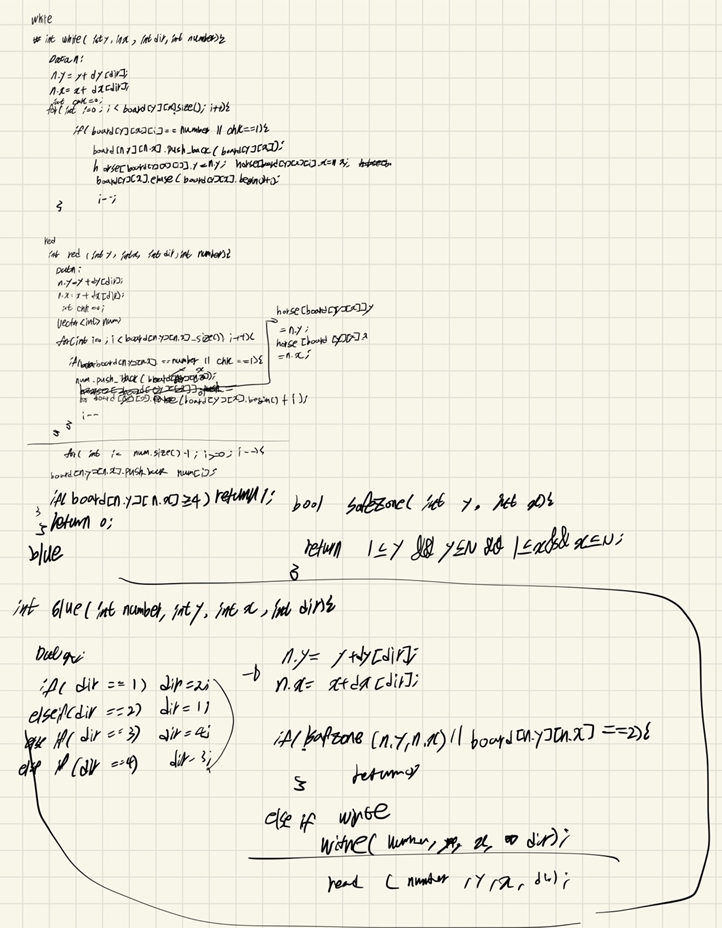 white
int white( int y, int x, int dir, int number){
Data n;
n.y= y+ dy[dir];
n.x= x+ dx[dir];
int chk=0;
for( int i=0; i < board[y][x].size(); i++){
if( board[y][x][i]== number || chk==1){
board[n.y][n.x].push_back( board[y][x]);
board[y][x].erase( board[y][x].begin()+i);
i--;
}
red
int red ( int y, int x, int dir, int number){
Data n;
n.y= y+dy[dir];
n.x= x+dx[dir];
int chk =0;
vector<int> num;
for(int i=0; i < board[n.y][n.x].size() i++){
== number || chk ==1){
num.push_back
(board[y][x].begin() + i);
i--
} }
horse[board[y][x]].y
= n.y;
horse[board[y][x]].x
= n.x;
for( int i= num.size() -1; i>=0; i--){
board[n.y][n.x].push_back num[i];
}
if( board[n.y][n.x] ≥4) return 1;
} return 0;
bool safezone( int y, int x){
return 1≤y && y≤N && 1≤x && x≤N;
}
blue
int blue( int number, int y, int x, int dir){
if( dir ==1) dir=2;
else if(dir ==2) dir=1;
else if(dir ==3) dir=4;
else if(dir ==4) dir=3;
n.y= y+dy[dir];
n.x= x+dx[dir];
if( safzone (n.y,n.x) || board[n.y][n.x] ==2){
}
else if white
( number, x, dir);
( number ,y ,x, dir);